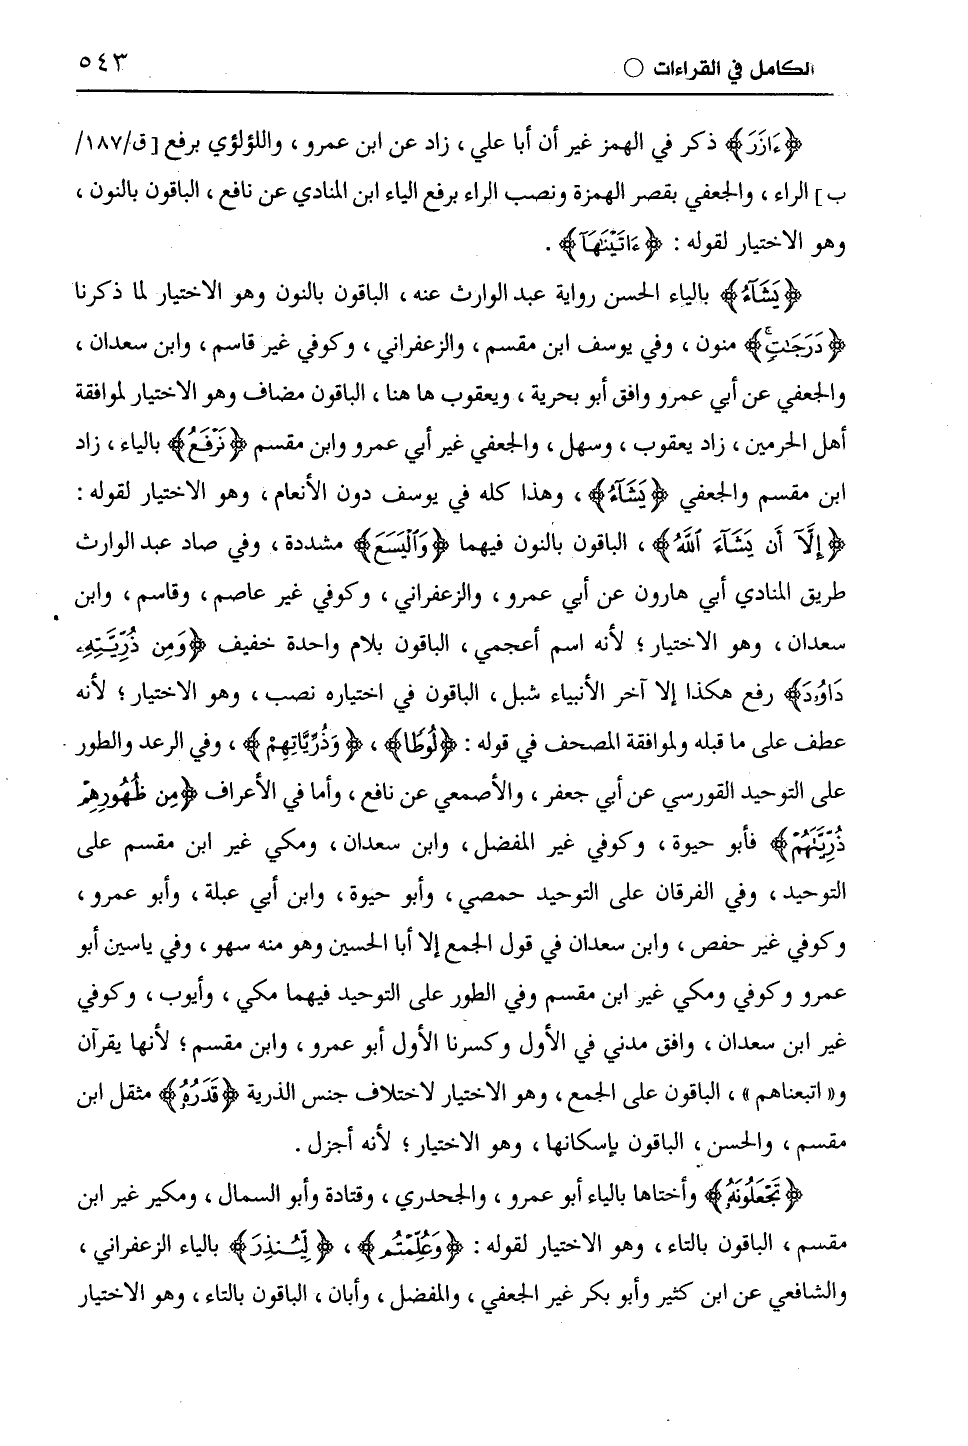 الكامل في القراءات ○ ٥٤٣
﴿ءَازَرَ﴾ ذكر في الهمز غير أن أبا علي، زاد عن ابن عمرو، واللؤلؤي برفع [ق/١٨٧/
ب] الراء، والجعفي بقصر الهمزة ونصب الراء برفع الياء ابن المنادي عن نافع، الباقون بالنون،
وهو الاختيار لقوله: ﴿ءَاتَيْنَٰهَآ﴾.
﴿يَشَآءُ﴾ بالياء الحسن رواية عبد الوارث عنه، الباقون بالنون وهو الاختيار لما ذكرنا
﴿دَرَجَٰتٍۚ﴾ منون، وفي يوسف ابن مقسم، والزعفراني، وكوفي غير قاسم، وابن سعدان،
والجعفي عن أبي عمرو وافق أبو بحرية، ويعقوب ها هنا، الباقون مضاف وهو الاختيار لموافقة
أهل الحرمين، زاد يعقوب، وسهل، والجعفي غير أبي عمرو وابن مقسم ﴿نَرْفَعُ﴾ بالياء، زاد
ابن مقسم والجعفي ﴿يَشَآءُ﴾، وهذا كله في يوسف دون الأنعام، وهو الاختيار لقوله:
﴿إِلَّآ أَن يَشَآءَ ٱللَّهُ﴾، الباقون بالنون فيهما ﴿وَٱلْيَسَعَ﴾ مشددة، وفي صاد عبد الوارث
طريق المنادي أبي هارون عن أبي عمرو، والزعفراني، وكوفي غير عاصم، وقاسم، وابن
سعدان، وهو الاختيار؛ لأنه اسم أعجمي، الباقون بلام واحدة خفيف ﴿وَمِن ذُرِّيَّتِهِۦ
دَاوُۥدَ﴾ رفع هكذا إلا آخر الأنبياء شبل، الباقون في اختياره نصب، وهو الاختيار؛ لأنه
عطف على ما قبله ولموافقة المصحف في قوله: ﴿لُوطًا﴾، ﴿وَذُرِّيَّاتِهِمْ﴾، وفي الرعد والطور
على التوحيد القورسي عن أبي جعفر، والأصمعي عن نافع، وأما في الأعراف ﴿مِن ظُهُورِهِمْ
ذُرِّيَّتَهُمْ﴾ فأبو حيوة، وكوفي غير المفضل، وابن سعدان، ومكي غير ابن مقسم على
التوحيد، وفي الفرقان على التوحيد حمصي، وأبو حيوة، وابن أبي عبلة، وأبو عمرو،
وكوفي غير حفص، وابن سعدان في قول الجمع إلا أبا الحسين وهو منه سهو، وفي ياسين أبو
عمرو وكوفي ومكي غير ابن مقسم وفي الطور على التوحيد فيهما مكي، وأيوب، وكوفي
غير ابن سعدان، وافق مدني في الأول وكسرنا الأول أبو عمرو، وابن مقسم؛ لأنها يقرآن
و«اتبعناهم»، الباقون على الجمع، وهو الاختيار لاختلاف جنس الذرية ﴿قَدَرُهُ﴾ مثقل ابن
مقسم، والحسن، الباقون بإسكانها، وهو الاختيار؛ لأنه أجزل.
﴿تَجْعَلُونَهُۥ﴾ وأختاها بالياء أبو عمرو، والجحدري، وقتادة وأبو السمال، ومكير غير ابن
مقسم، الباقون بالتاء، وهو الاختيار لقوله: ﴿وَعُلِّمْتُم﴾، ﴿لِّيُنذِرَ﴾ بالياء الزعفراني،
والشافعي عن ابن كثير وأبو بكر غير الجعفي، والمفضل، وأبان، الباقون بالتاء، وهو الاختيار